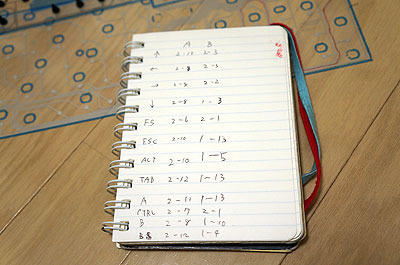 A B
↑ 2-12 2-3
← 2-8 2-3
→ 2-8 2-2
↓ 2-8 1-3
F5 2-6 2-1
ESC 2-10 1-13
ALT 2-10 1-5
TAB 2-12 1-13
A 2-11 1-13
CTRL 2-7 2-1
B 2-8 1-10
2-12 1-4